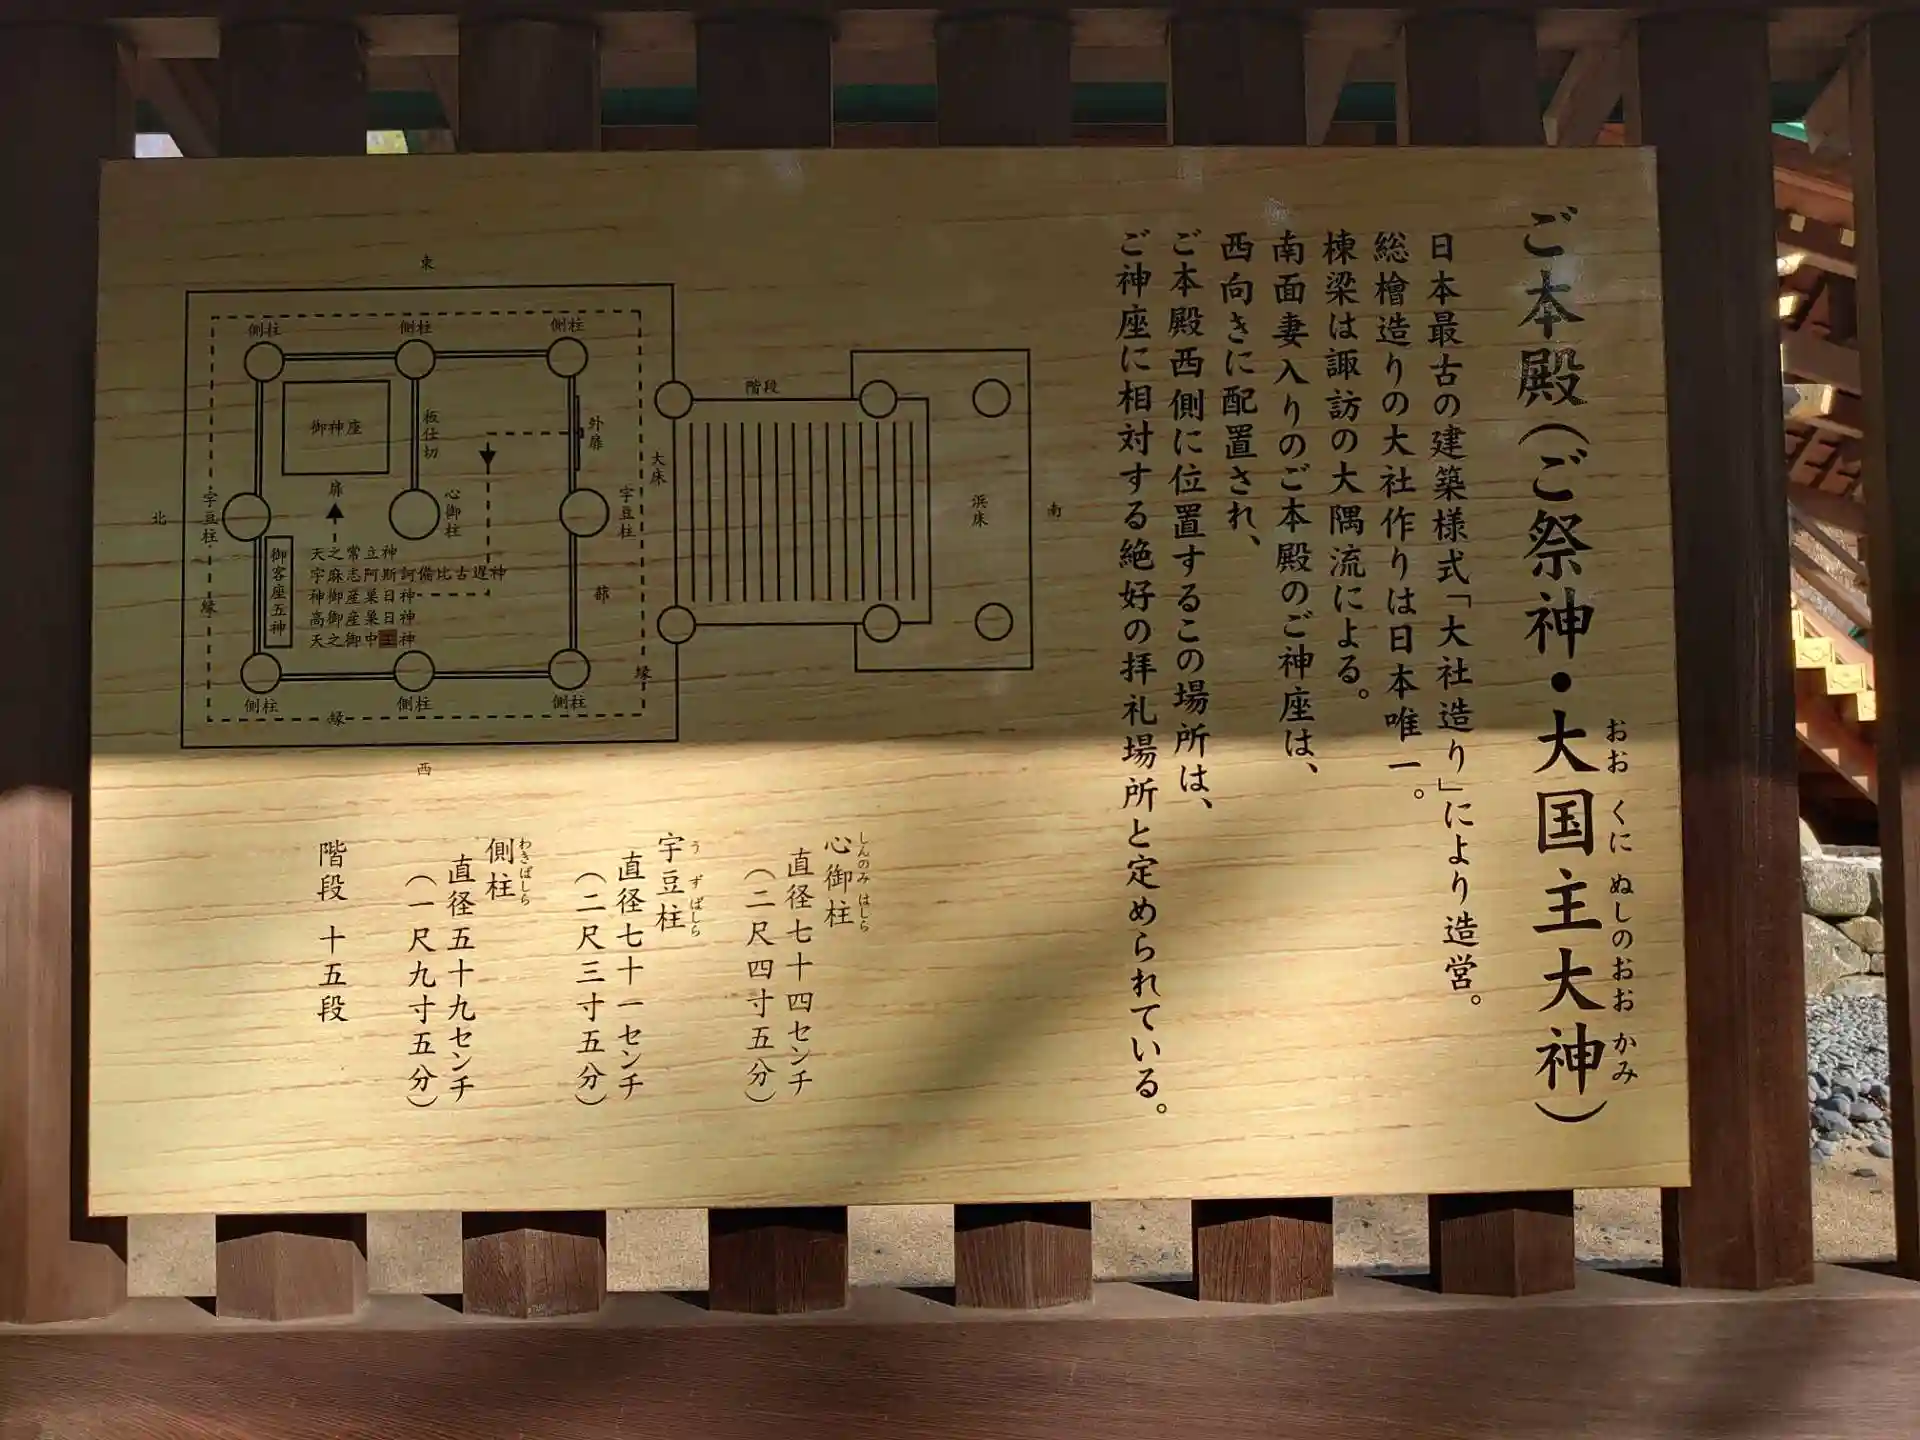 ご本殿(ご祭神・大国主大神)
おお くに ぬしのおお かみ
日本最古の建築様式「大社造り」により造営。
総檜造りの大社作りは日本唯一。
棟梁は諏訪の大隅流による。
南面妻入りのご本殿のご神座は、
西向きに配置され、
ご本殿西側に位置するこの場所は、
ご神座に相対する絶好の拝礼場所と定められている。
東
側柱
側柱
側柱
御神座
板仕切
外扉
扉
心御柱
宇豆柱
宇豆柱
北
南
大床
階段
浜床
御客座五神
天之常立神
宇麻志阿斯訶備比古遅神
神御産巣日神
高御産巣日神
天之御中主神
蔀
縁
縁
縁
側柱
側柱
側柱
西
心御柱
しんのみ はしら
直径七十四センチ
(二尺四寸五分)
宇豆柱
う ず ばしら
直径七十一センチ
(二尺三寸五分)
側柱
わきばしら
直径五十九センチ
(一尺九寸五分)
階段 十五段